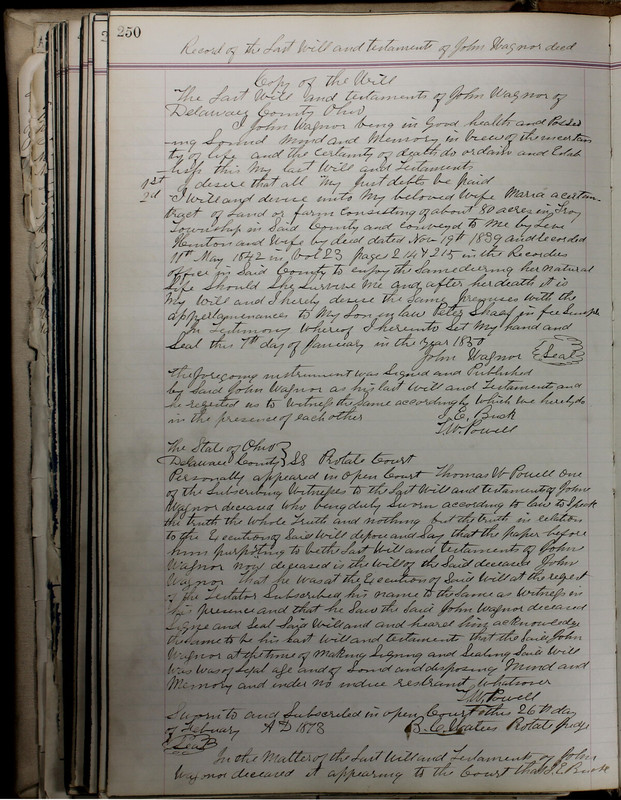 250
Record of the Last Will and testaments of John Wagnor deed
Copy of the Will
The Last Will and testaments of John Wagnor of
Delaware County Ohio
I John Wagnor being in Good health and
ing Sound Mind and Memory in view of the uncertain
ty of life and the certainty of death do ordain and Estab
lish this My last Will and Testaments
1st I desire that all My Just debts be paid
2d I will and devise unto My beloved Wife Maria a certain
tract of Land or farm consisting of about 80 acres in Troy
Township in Said County and conveyd to Me by
Hinton and Wife by deed dated Nov 19th 1839 and recorded
11th May 1842 in Vol 23 pages 214 & 215 in the Recorders
office in Said County to enjoy the Same dering her natural
life Should She Survive Me and after her death it is
My Will and I hereby devise the Same premises with the
appertainenances to My Son in law Peter in fee Simple
In Testimony Whereof I hereunto Set My hand and
Seal this 7th day of January in the year 1850
John Wagnor Seal
The foregoing instrument was Signed and Published
by Said John Wagnor as his last Will and Testiment and
he reqested us to Witness the Same accordingly Which We hereby do
in the presence of each other I. E. Buck
T. W. Powell
The State of Ohio
Delaware County SS Probate Court
Personally appeared in Open Court Thomas W Powell One
of the Subscribing Witnesses to the Last Will and testament of John
Wagnor deceased who being duly Sworn according to law to Speak
the truth the Whole Truth and nothing but the truth in relation
to the Execution of Said Will depose and Say that the paper before
him purpoting to be the Last Will and testaments of John
Wagnor now deceased is the will of the Said deceased John
Wagnor that he was at the Execution of Said Will at the reqest
of the Testator Subscribed his name to the Same as Witness in
his presence and that he Saw the Said John Wagnor deceased
Signe and Seal Said Will and and heard him acknowledge
the Same to be his last Will and testament that the Said John
Wagnor at the time of Making Signing and Sealing Said Will
was was of Legal age and of Sound and disposing Mind and
Memory and under no undue restraint Whatsoever
T. W. Powell
Sworn to and Subscribed in open Court this 26th day
of February AD 1878 B. C. Waters Probate Judge
Seal
In the Matter of the Last Will and Testaments of John
Wagnor deceased it appearing to the Court that I. E. Buck